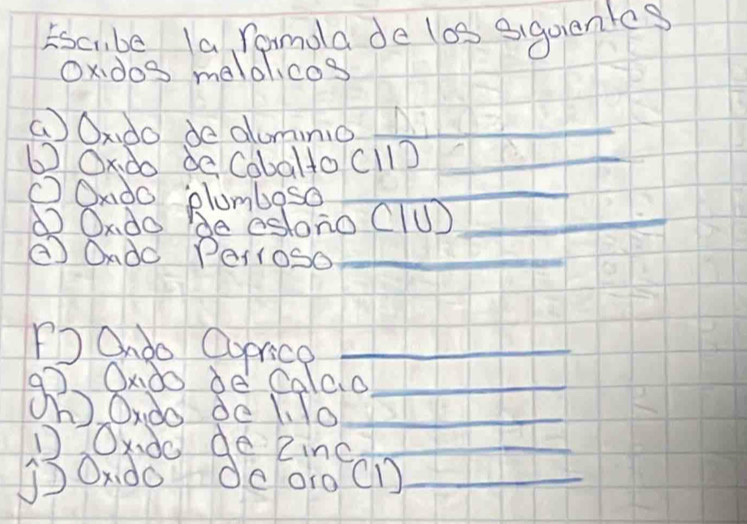 Escribe la formola de los siguientes
oxidos metalicos
a) Oxido de aluminio
b) Oxido de Cobalto (II)
c) Oxido plumboso
d) Oxido de estaño (IV)
e) Oxido Ferroso
F) Oxido Cuprico
g) Oxido de Calcio
h) Oxido de litio
i) Oxido de zinc
j) Oxido de oro (I)